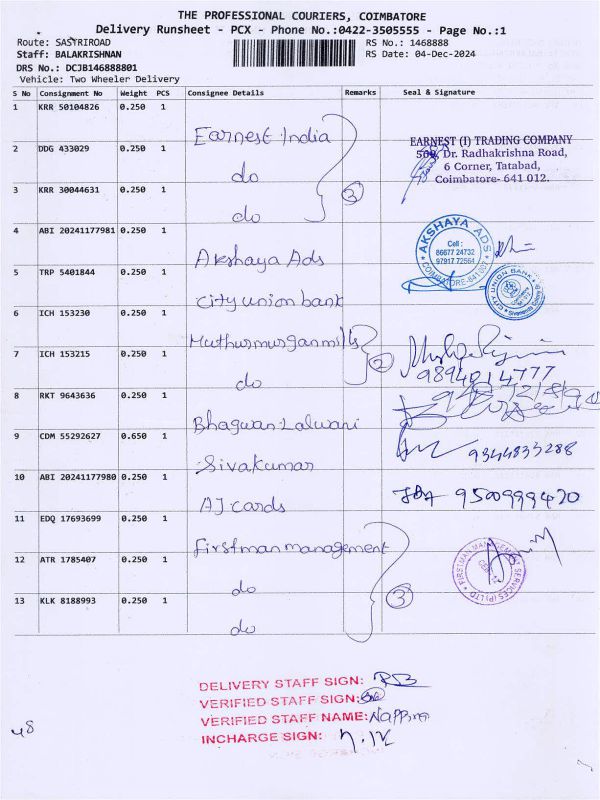 THE PROFESSIONAL COURIERS, COIMBATORE
Delivery Runsheet - PCX - Phone No.:0422-3505555 - Page No.:1
Route: SASTRIROAD
Staff: BALAKRISHNAN
DRS No.: DCJB146888801
Vehicle: Two Wheeler Delivery
RS No.: 1468888
RS Date: 04-Dec-2024
S No Consignment No Weight PCS Consignee Details Remarks Seal & Signature
1 KRR 50104826 0.250 1 Earnest India
2 DDG 433029 0.250 1 do
3 KRR 30044631 0.250 1 do
3
EARNEST (I) TRADING COMPANY
Dr. Radhakrishna Road,
6 Corner, Tatabad,
Coimbatore- 641 012.
4 ABI 20241177981 0.250 1 Akshaya Ads
AKSHAYA ADS
Cell :
86677 24732
97917 72564
COIMBATORE-641
5 TRP 5401844 0.250 1 City union bank
CITY UNION BANK
6 ICH 153230 0.250 1 Muthurmurganmills
7 ICH 153215 0.250 1 do
2
9894014777
8 RKT 9643636 0.250 1 Bhagwan Lalwani
9 CDM 55292627 0.650 1 Sivakumar
9344833288
10 ABI 20241177980 0.250 1 AJ cards
9500999420
11 EDQ 17693699 0.250 1 Firstman management
12 ATR 1785407 0.250 1 do
13 KLK 8188993 0.250 1 do
3
FIRSTMAN MANAGEMENT SERVICES (P) LTD
DELIVERY STAFF SIGN:
VERIFIED STAFF SIGN:
VERIFIED STAFF NAME:
INCHARGE SIGN:
48